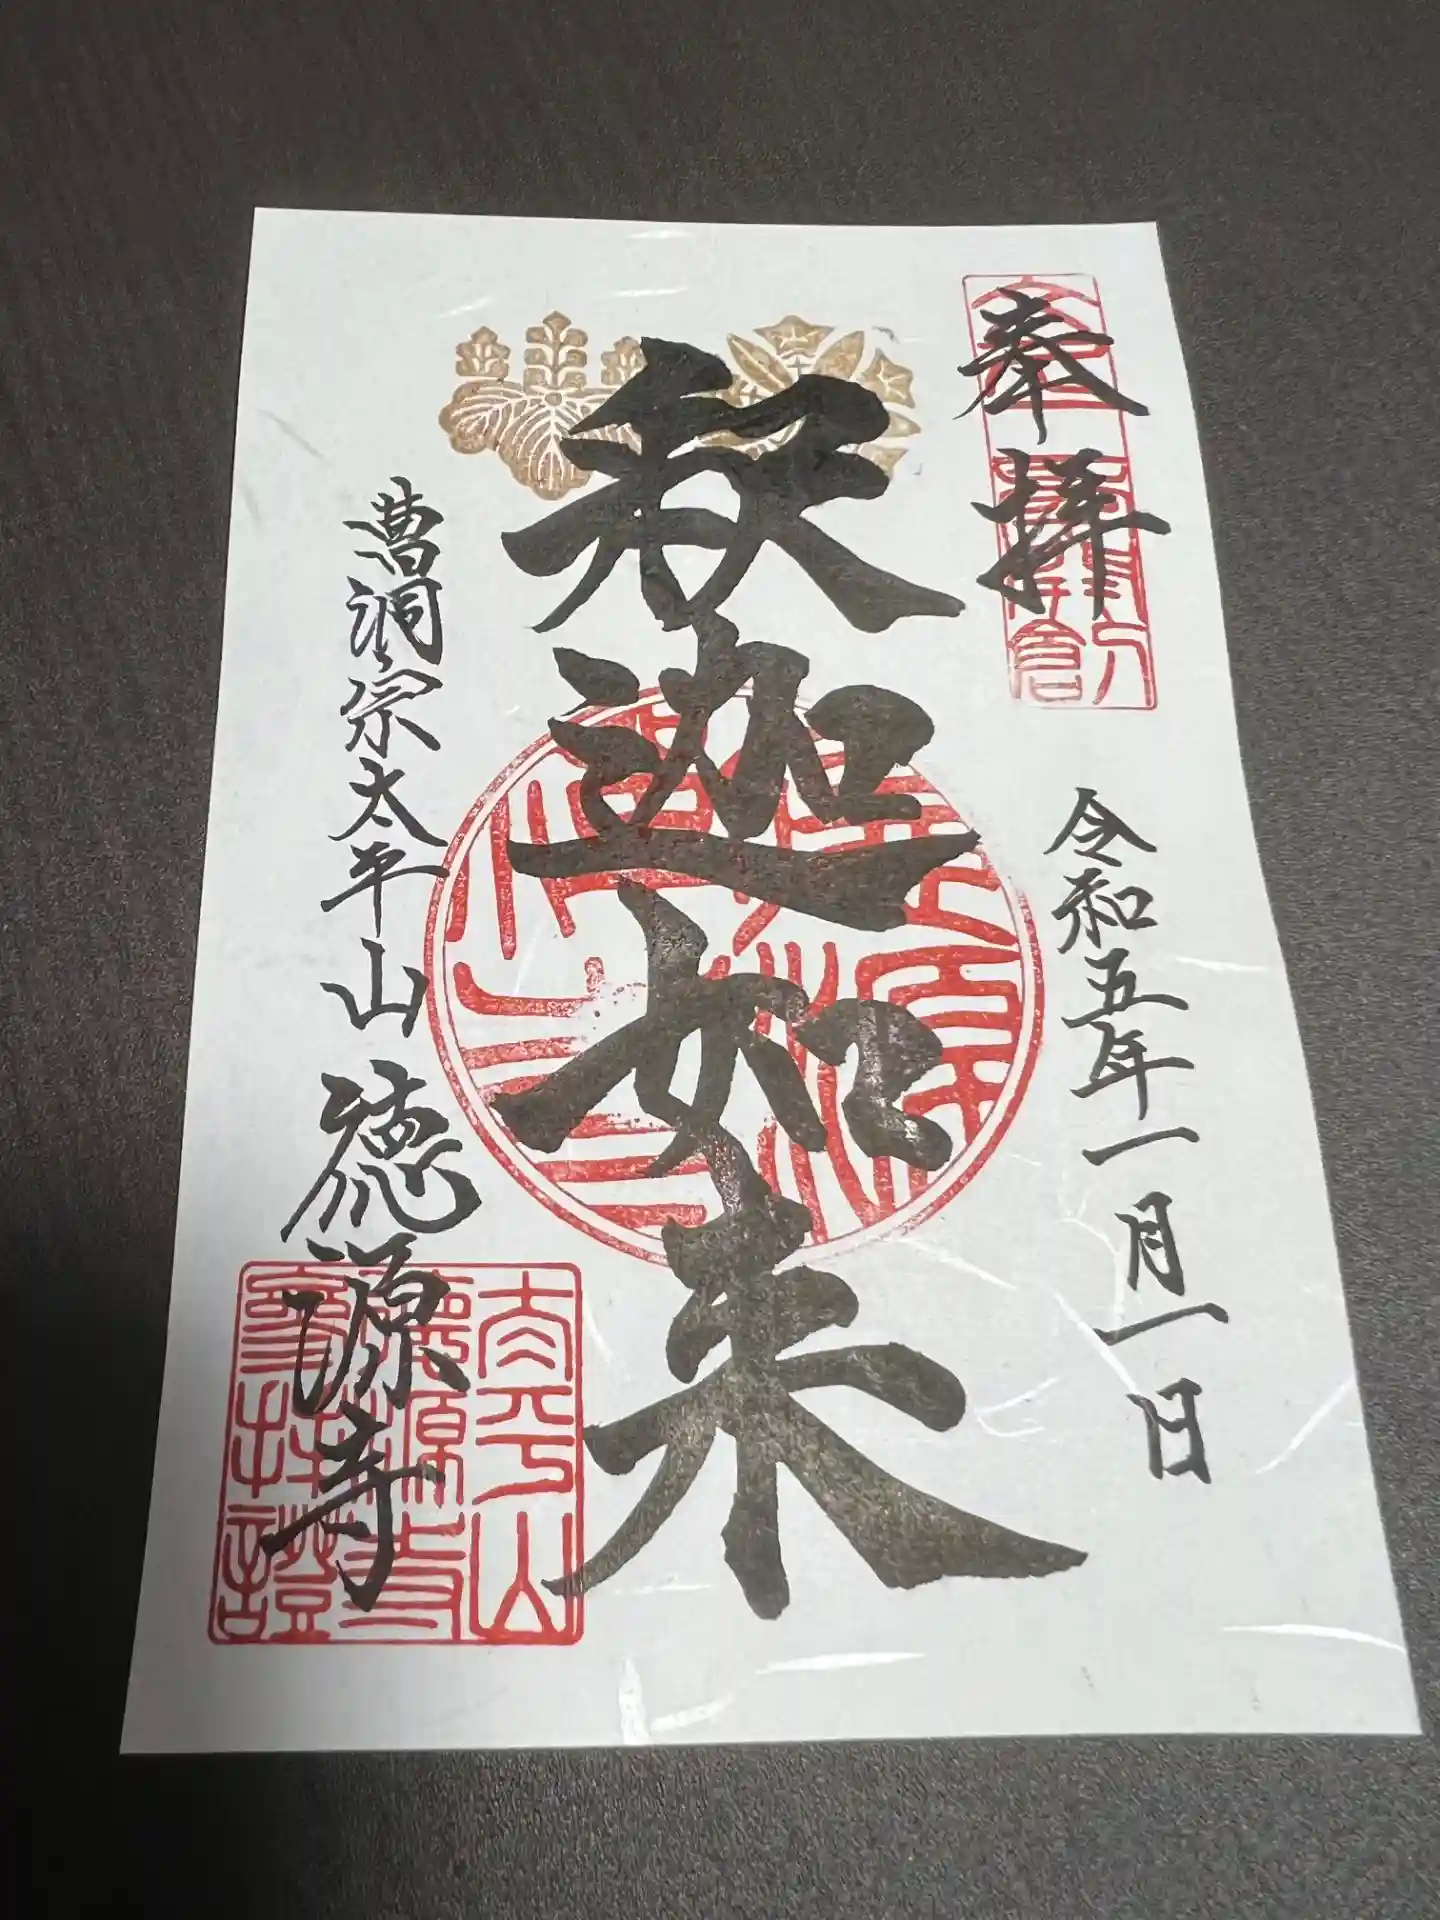 奉拝
令和五年一月一日
釈迦如来
曹洞宗太平山
徳源寺
太平山
徳源寺
参拝證